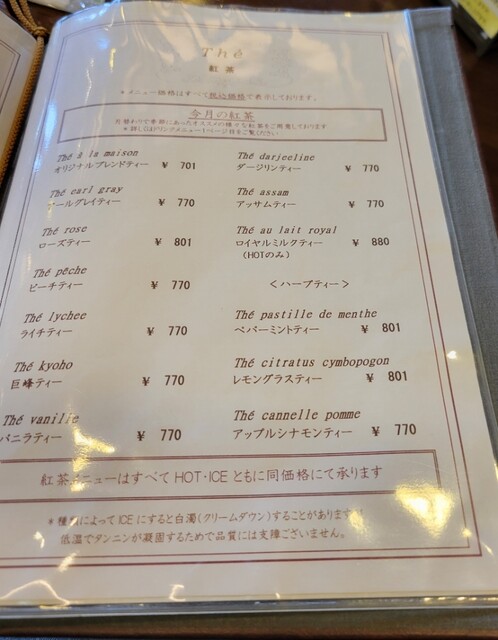 Thé
紅茶
*メニュー価格はすべて税込価格で表示しております。
今月の紅茶
月替わりで季節にあったオススメの様々な紅茶をご用意しております
*詳しくはドリンクメニュー1ページ目をご覧ください
Thé à la maison
オリジナルブレンドティー ¥ 701
Thé earl gray
アールグレイティー ¥ 770
Thé rose
ローズティー ¥ 801
Thé pêche
ピーチティー ¥ 770
Thé lychee
ライチティー ¥ 770
Thé kyoho
巨峰ティー ¥ 770
Thé vanilie
バニラティー ¥ 770
Thé darjeeline
ダージリンティー ¥ 770
Thé assam
アッサムティー ¥ 770
Thé au lait royal
ロイヤルミルクティー ¥ 880
(HOTのみ)
<ハーブティー>
Thé pastille de menthe
ペパーミントティー ¥ 801
Thé citratus cymbopogon
レモングラスティー ¥ 801
Thé cannelle pomme
アップルシナモンティー ¥ 770
紅茶メニューはすべて HOT・ICE ともに同価格にて承ります
*種類によって ICE にすると白濁(クリームダウン)することがあります
低温でタンニンが凝固するためで品質には支障ございません。